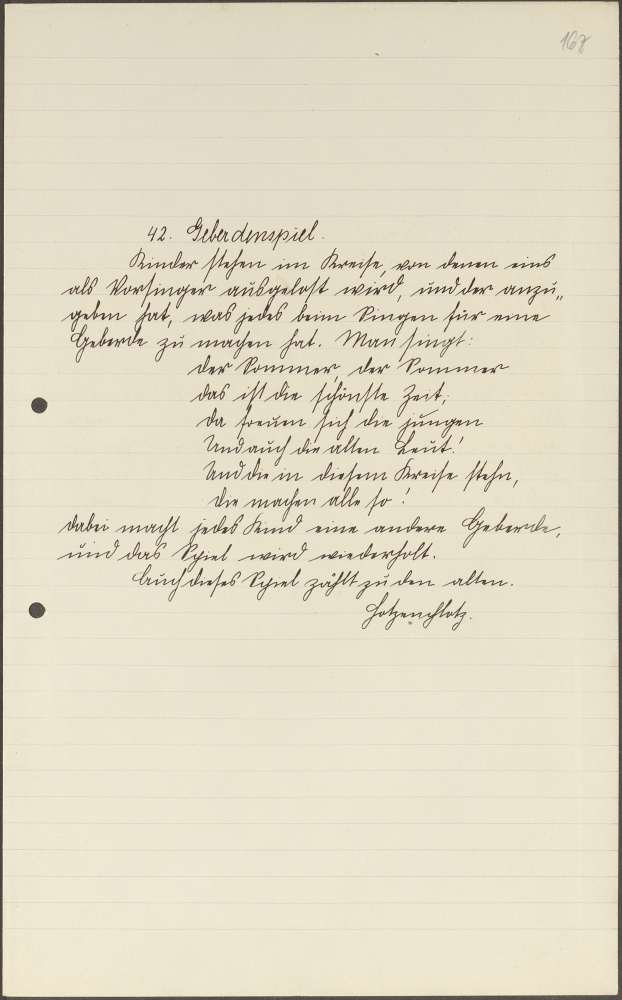 168
42. Geberdenspiel.
Kinder stehen im Kreise, von denen eins
als Vorsinger ausgelost wird, und der anzu„
geben hat, was jedes beim Singen für eine
Geberde zu machen hat. Man singt:
der Sommer, der Sommer
das ist die schönste Zeit,
da freuen sich die jungen
Und auch die alten Leut!
Und die in diesem Kreise stehn,
die machen alle so!
dabei macht jedes Kind eine andere Geberde,
und das Spiel wird wiederholt.
Auch dieses Spiel zählt zu den alten.
Hotzenplotz.